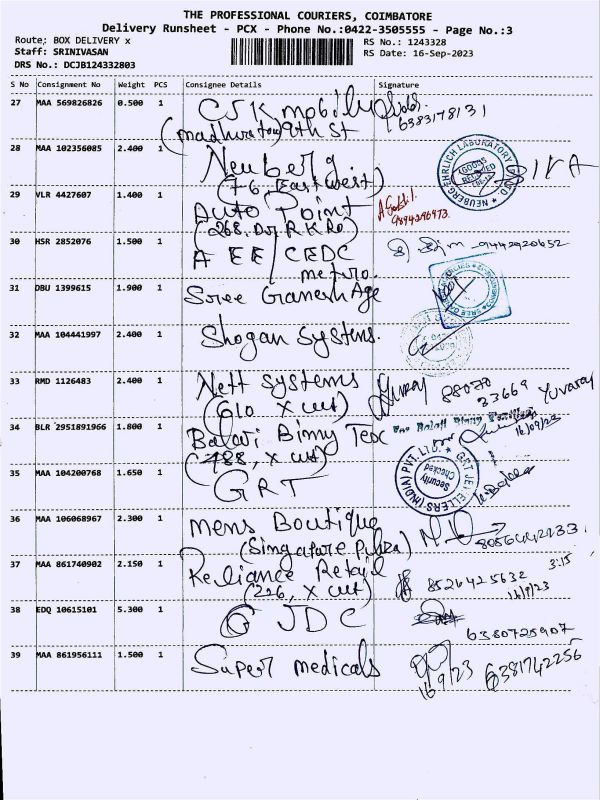 THE PROFESSIONAL COURIERS, COIMBATORE
Delivery Runsheet - PCX - Phone No.:0422-3505555 - Page No.:3
Route: BOX DELIVERY x
RS No.: 1243328
Staff: SRINIVASAN
RS Date: 16-Sep-2023
DRS No.: DCJB124332803
S No Consignment No Weight PCS Consignee Details Signature
27 MAA 569826826 0.500 1 CSK mobil
6383178131
9th St
28 MAA 102356085 2.400 1 Neuberg
(76, East West)
NEUBERG EHRLICH LABORATORY
GOODS
RECEIVED
29 VLR 4427607 1.400 1 Auto Point
(268, Dr R K Rd)
9894296973
30 HSR 2852076 1.500 1 A EE/CEDC
metro.
9442920652
31 DBU 1399615 1.900 1 Sree Ganesh Age
32 MAA 104441997 2.400 1 Shogan Systems.
33 RMD 1126483 2.400 1 Nett Systems
(610 X cut)
88070
33669 Yuvaraj
34 BLR 2951891966 1.800 1 Balavi Bimy Tex
(488, X cut)
16/09/23
35 MAA 104200768 1.650 1 GRT
GRT JEWELLERS (INDIA) PVT. LTD.
Security
Checked
36 MAA 106068967 2.300 1 Mens Boutique
(Singapore Plaza)
8056442233
37 MAA 861740902 2.150 1 Reliance Retail
(226, X cut)
8526425632
3:15
16/9/23
38 EDQ 10615101 5.300 1 JDC
6380725907
39 MAA 861956111 1.500 1 Super medicals
16/9/23
6381742256